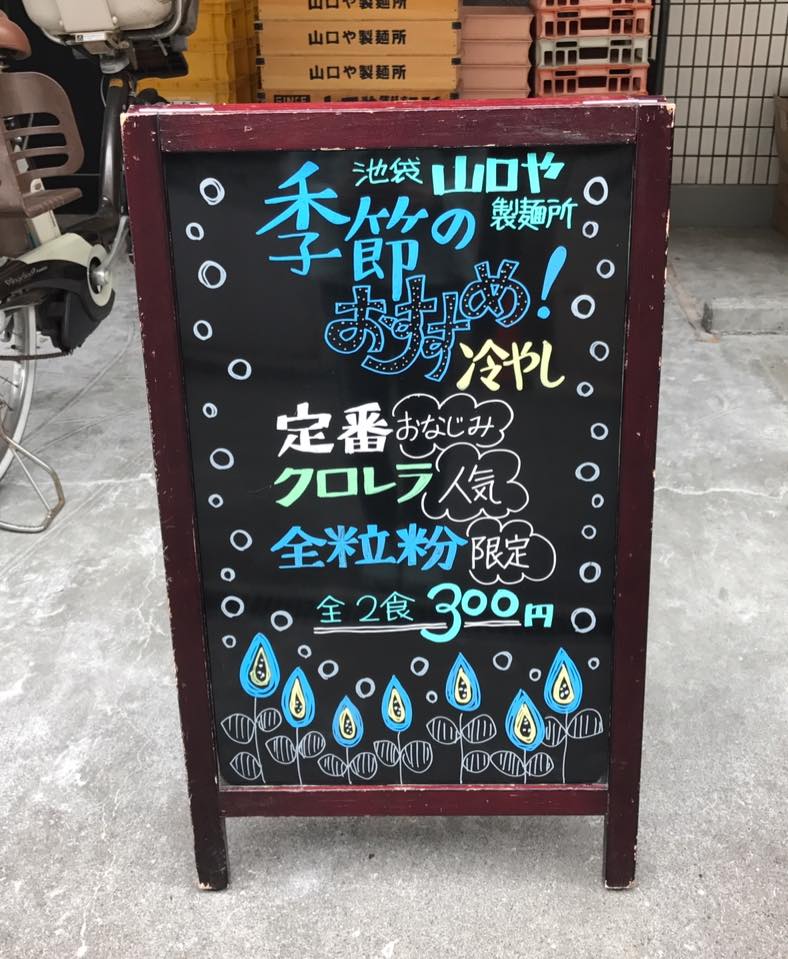 山口や製麺所
山口や製麺所
山口や製麺所
池袋 山口や
製麺所
季節の
おすすめ!
冷やし
定番 おなじみ
クロレラ 人気
全粒粉 限定
全2食 300円